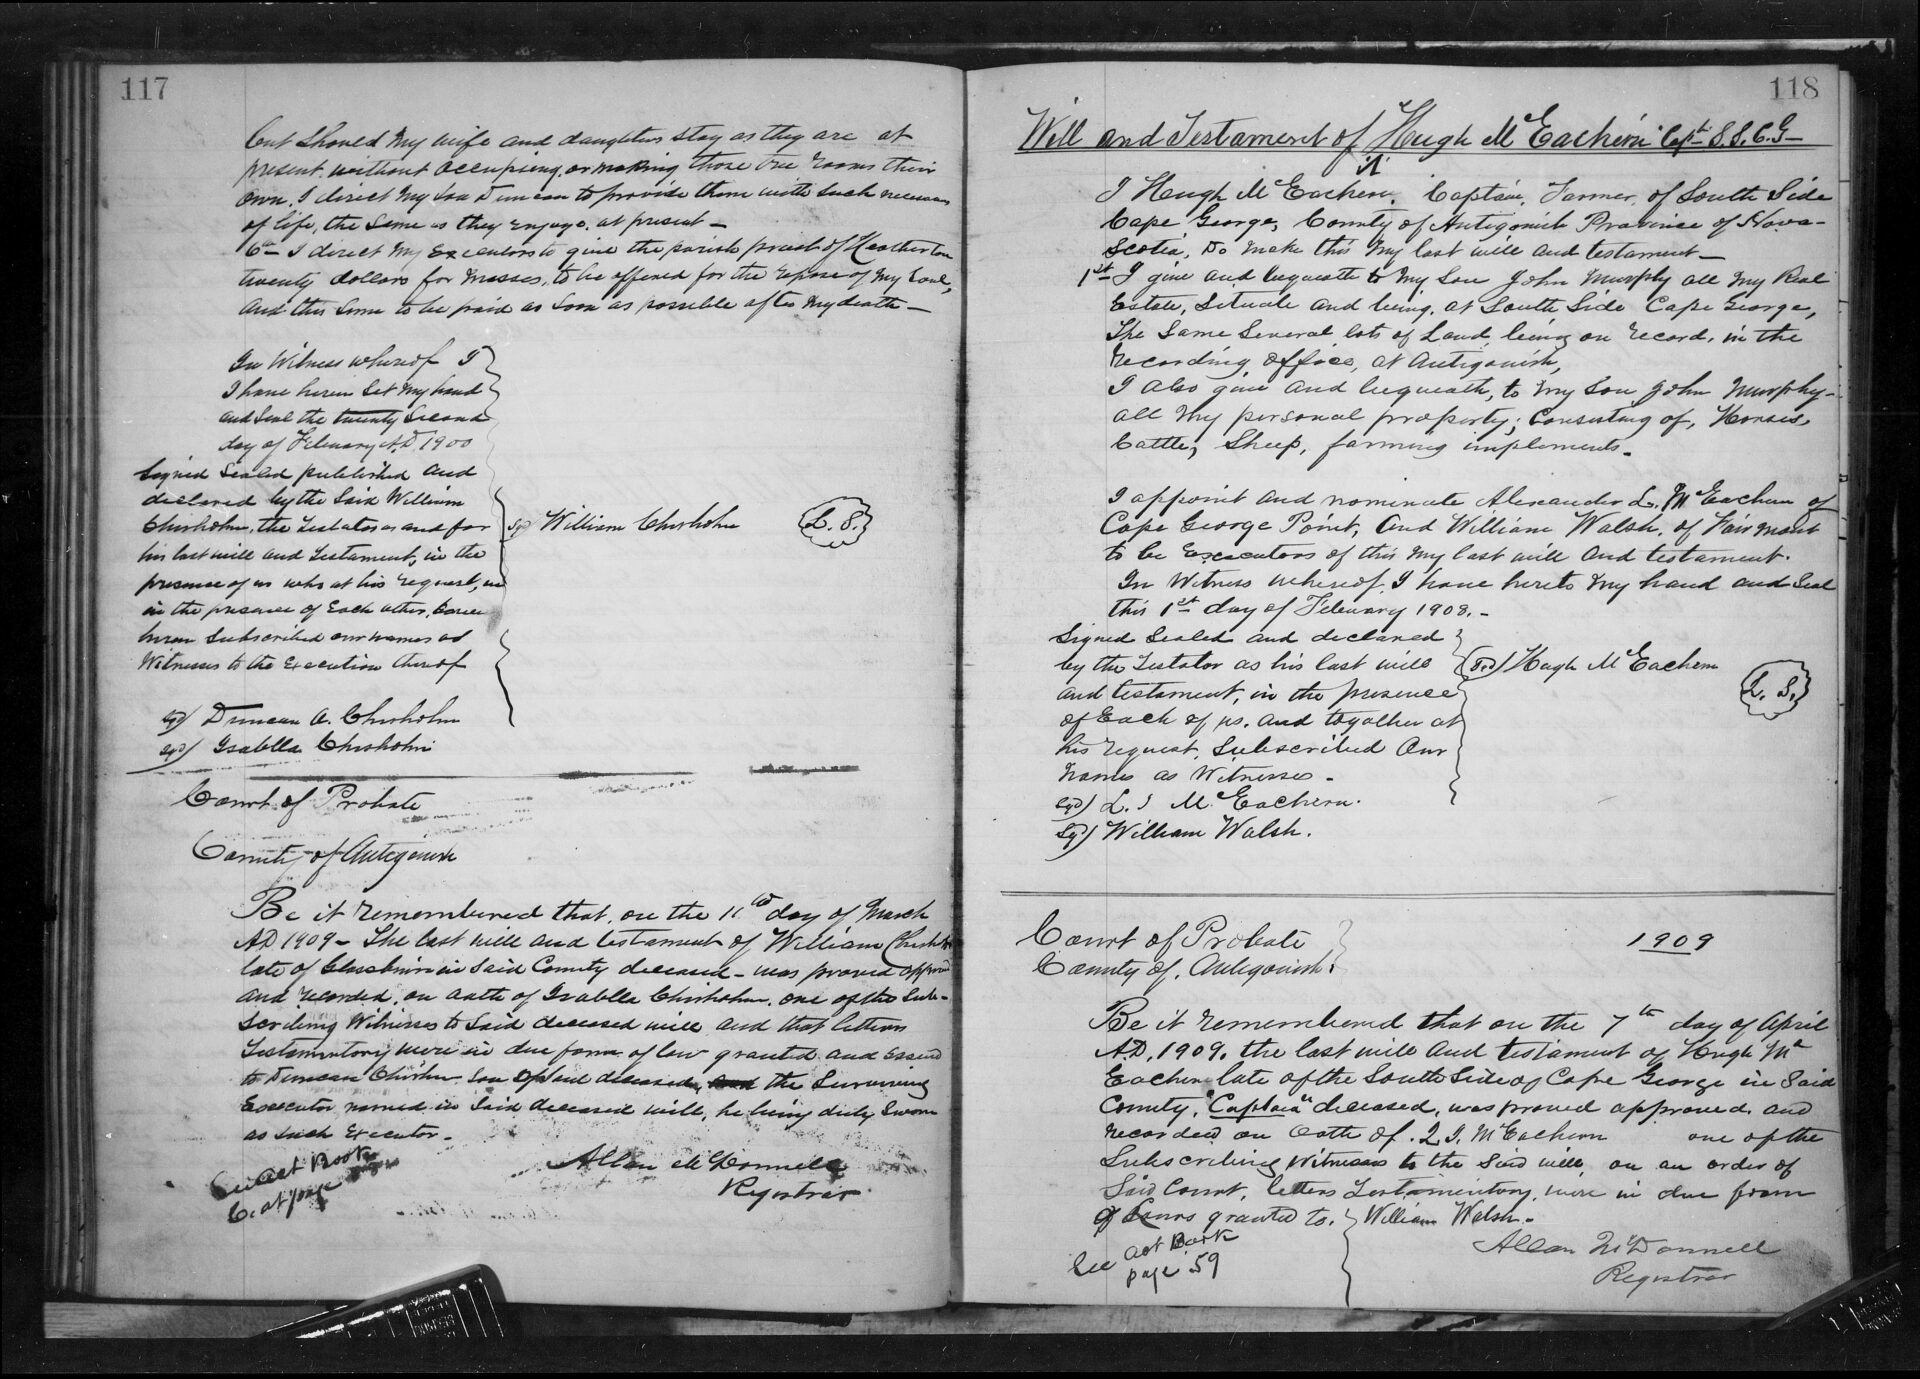 117
but should my wife and daughters stay as they are at
present without occupying, or making those two rooms their
own. I direct my son Duncan to provide them with such necessaries
of life, the same as they enjoyed at present -
6th I direct my Executors to give the parish priest of Heatherton
twenty dollars for masses, to be offered for the repose of my soul,
and this sum to be paid as soon as possible after my death -
In Witness whereof I
I have herein set my hand
and seal the twenty second
day of February A.D. 1900
Signed sealed published and
declared by the said William
Chisholm, the Testator as and for
his last will and Testament, in the
presence of us who at his request, and
in the presence of each other, have
herein subscribed our names as
Witnesses to the execution thereof
Sgd) William Chisholm L. S.
Sgd) Duncan A. Chisholm
Sgd) Isabella Chisholm
Court of Probate
County of Antigonish
Be it remembered that, on the 11th day of March
A.D 1909 - The last will and testament of William Chisholm
late of in said County deceased - was proved approved
and recorded, on oath of Isabella Chisholm, one of the Sub-
scribing Witnesses to said deceased will and that letters
Testamentory were in due form of law granted and issued
to Duncan Chisholm son of said deceased, and the Surviving
Executor named in said deceased will, he being duly sworn
as such Executor -
See Act Book
C. at page
Allan McDonnell
Registrar
118
Will and Testament of Hugh McEachern Capt S.S.C.G -
I Hugh McEachern, Captain, Farmer, of South Side
Cape George, County of Antigonish Province of Nova-
Scotia, do make this my last will and testament -
1st I give and bequeath to my son John Murphy all my Real
Estate, Situate and being, at South Side Cape George,
The same several lots of Land, being on record, in the
recording office, at Antigonish,
I also give and bequeath, to my son John Murphy -
all my personal property; Consisting of, Horses,
Cattle, Sheep, farming implements -
I appoint and nominate Alexander L. McEachern of
Cape George Point, and William Walsh, of Fairmont
to be Executors of this my last will and testament.
In Witness whereof, I have hereto my hand and seal
this 1st day of February 1908. -
Signed Sealed and declared
by the Testator as his last will
and testament, in the presence
of Each of us. and together at
his request, subscribed our
names as Witnesses -
(Sgd) Hugh McEachern L. S.
Sgd) L. J McEachern.
Sgd) William Walsh.
Court of Probate
County of, Antigonish.
1909
Be it remembered that on the 7th day of April
A.D. 1909. the last will and testament of Hugh Mc
Eachern late of the South Side of Cape George in said
County, "Captain" deceased, was proved approved, and
recorded on oath of. L. J. McEachern one of the
Subscribing Witnesses to the said will, on an order of
said Court, letters Testamentory, were in due form
of granted to. William Walsh -
See Act Book
page 59
Allan McDonnell
Registrar